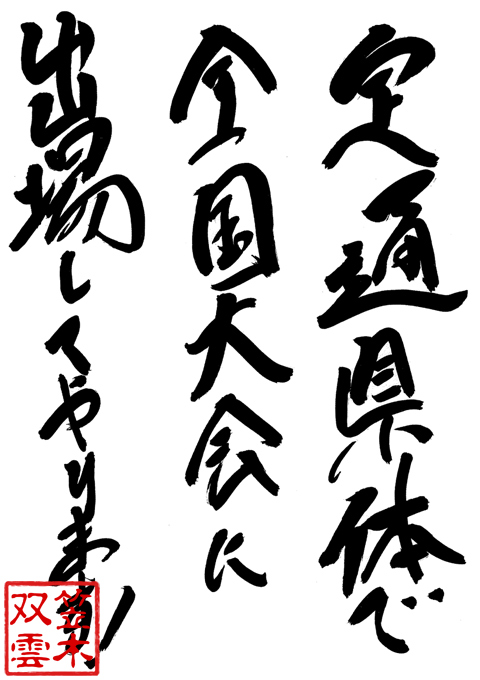 定通県体で
全国大会に
出場してやります!
笠木
双雲